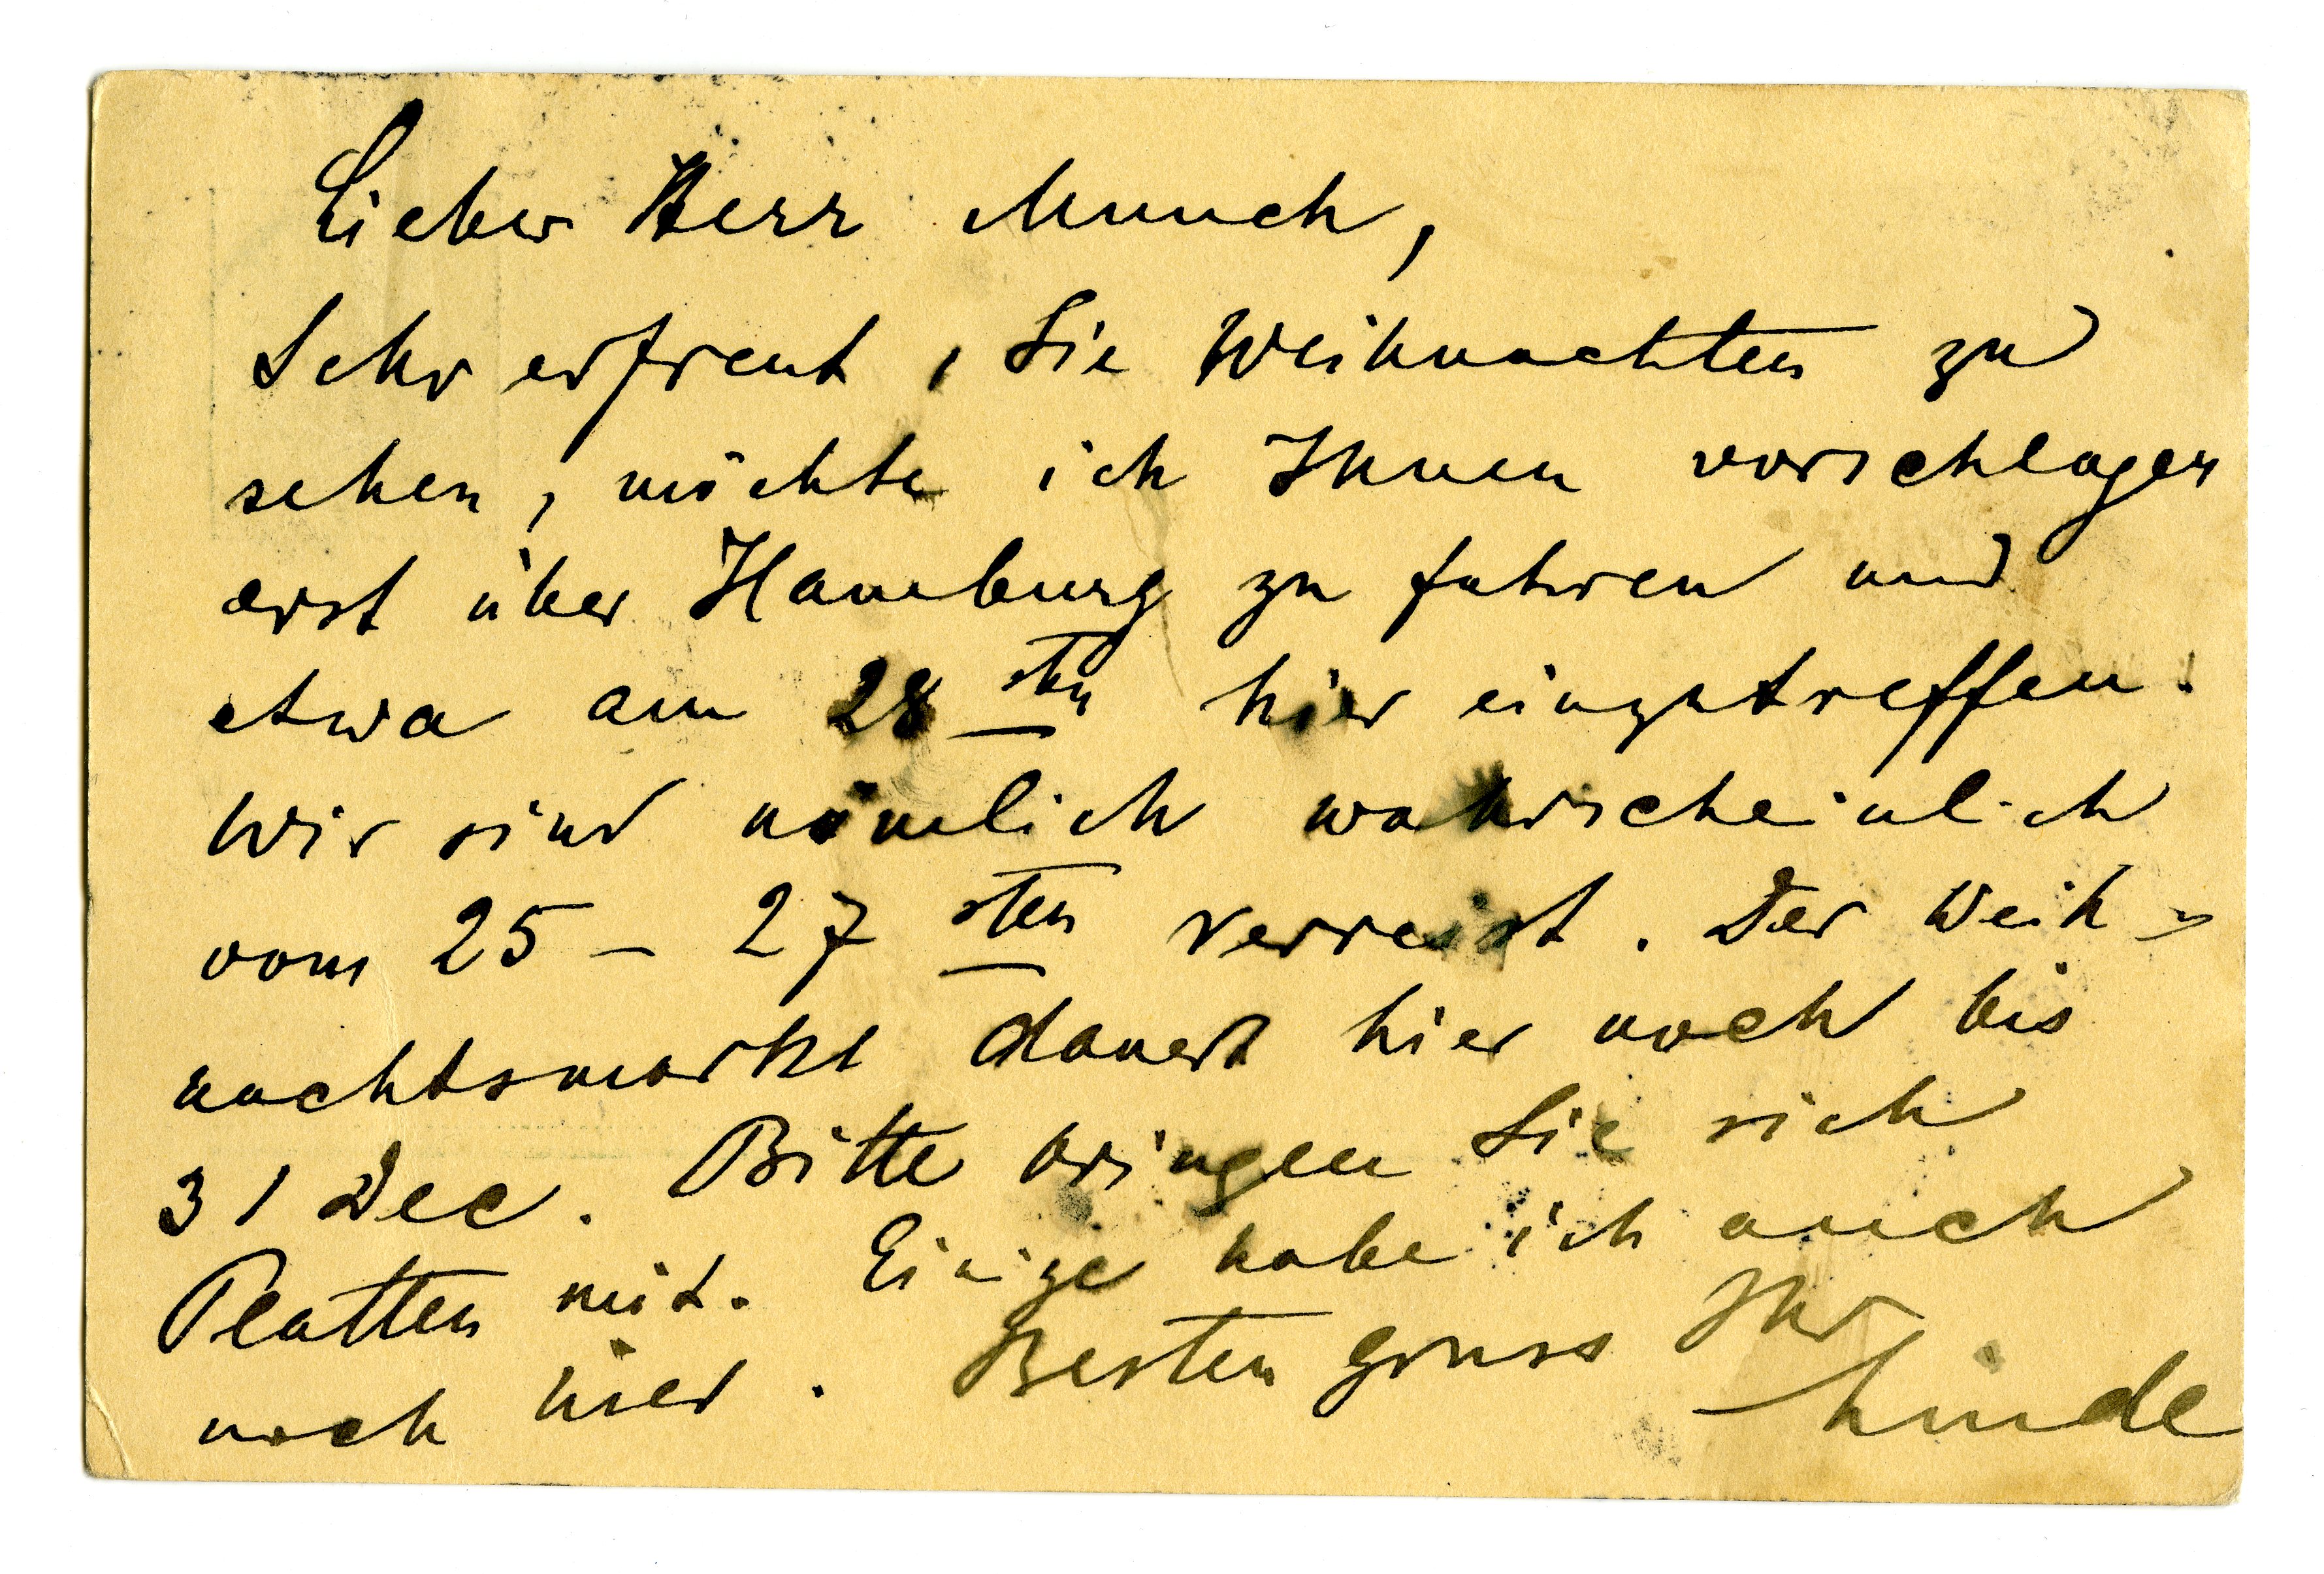 Lieber Herr Munch,
Sehr erfreut, Sie Weihnachten zu
sehen, möchte ich Ihnen vorschlagen
erst über Hamburg zu fahren und
etwa am 28sten hier einzutreffen.
Wir sind nämlich wahrscheinlich
vom 25 – 27sten verreist. Der Weih-
nachtsmarkt dauert hier noch bis
31 Dec. Bitte bringen Sie sich
Platten mit. Einige habe ich auch
noch hier. Besten Gruss Ihr
Linde